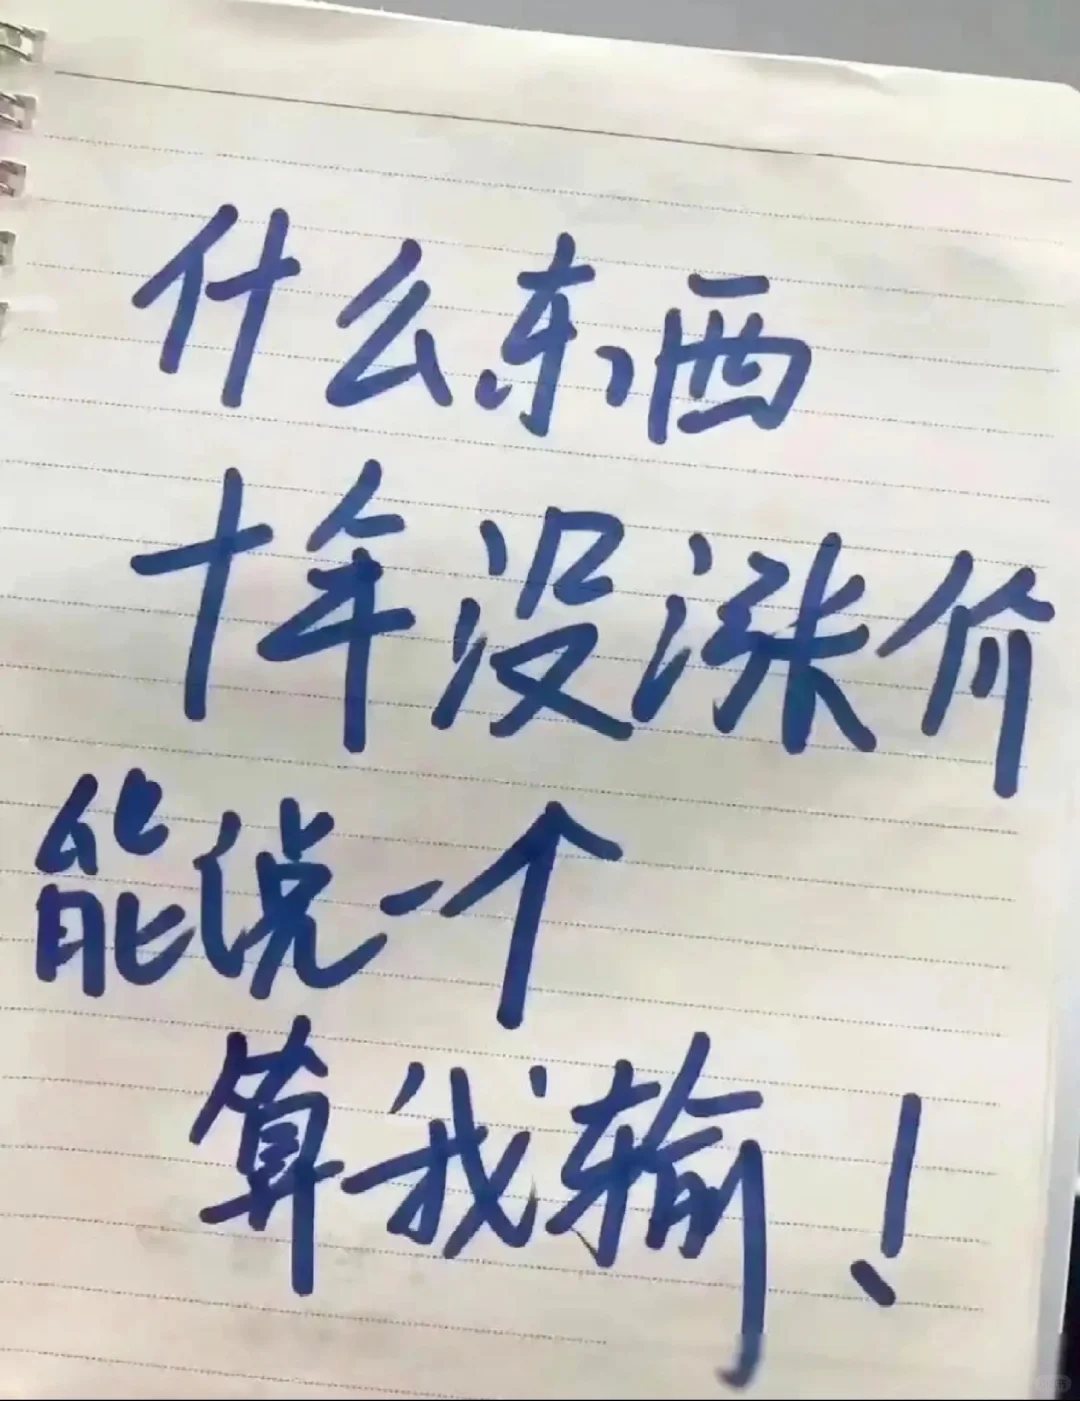 什么东西
十年没涨价
能说一个
算我输!